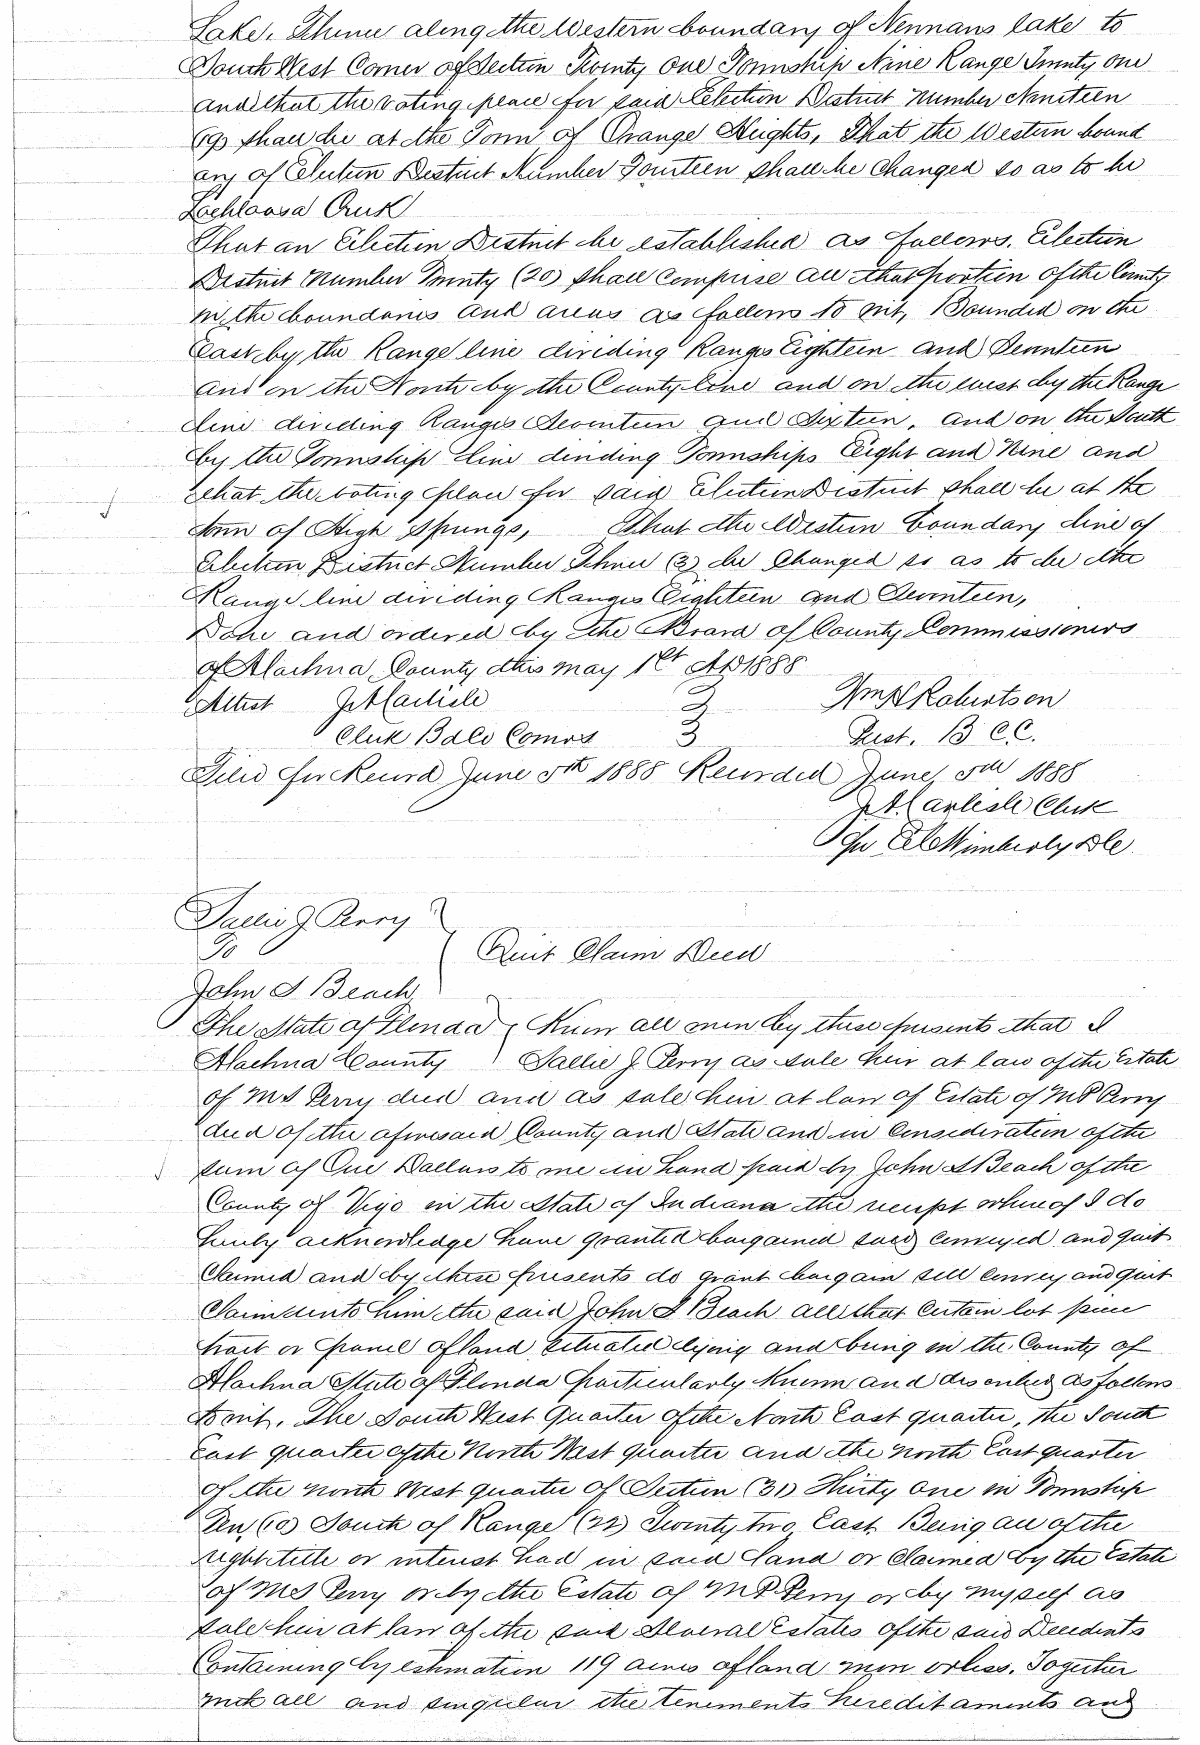 Lake, Thence along the Western boundary of Nennans lake to
South West Corner of Section Twenty one Township Nine Range Twenty one
and that the voting place for said Election District Number Nineteen
(19) shall be at the Town of Orange Heights, That the Western bound
ary of Election District Number Fourteen shall be changed so as to be
Lochloosa Creek
That an Election District be established as follows. Election
District Number Twenty (20) shall comprise all that portion of the County
in the boundaries and areas as follows to wit, Bounded on the
East by the Range line dividing Ranges Eighteen and Seventeen
and on the North by the County line and on the west by the Range
line dividing Ranges Seventeen and Sixteen, and on the South
by the Township line dividing Townships Eight and Nine and
that the voting place for said Election District shall be at the
town of High Springs, That the Western boundary line of
Election District Number Three (3) be changed so as to be the
Range line dividing Ranges Eighteen and Seventeen,
Done and ordered by the Board of County Commissioners
of Alachua County this May 1st AD 1888
Attest J A Carlisle Wm H Robertson
Clerk Bd Co Comrs Prest. B C.C.
Filed for Record June 5th 1888 Recorded June 5th 1888
J A Carlisle Clerk
Per Wimberly DC
Sallie J Perry
To Quit Claim Deed
John S Beach
The State of Florida Know all men by these presents that I
Alachua County Sallie J. Perry as sole heir at law of the Estate
of M S Perry decd and as sole heir at law of Estate of M P Perry
decd of the aforesaid County and State and in consideration of the
sum of One Dollars to me in hand paid by John S Beach of the
County of Vigo in the State of Indiana the receipt whereof I do
hereby acknowledge have granted bargained sold conveyed and quit
claimed and by these presents do grant bargain sell convey and quit
claim unto him the said John S Beach all that certain lot piece
tract or parcel of land situated lying and being in the County of
Alachua State of Florida particularly known and described as follows
to wit. The South West Quarter of the North East quarter, the South
East quarter of the North West quarter and the north East quarter
of the north West quarter of Section (31) Thirty one in Township
Ten (10) South of Range (22) Twenty two East Being all of the
right title or interest had in said land or claimed by the Estate
of M S Perry or by the Estate of M P Perry or by myself as
sole heir at law of the said Several Estates of the said Decedents
Containing by estimation 119 acres of land more or less. Together
with all and singular the tenements hereditaments and